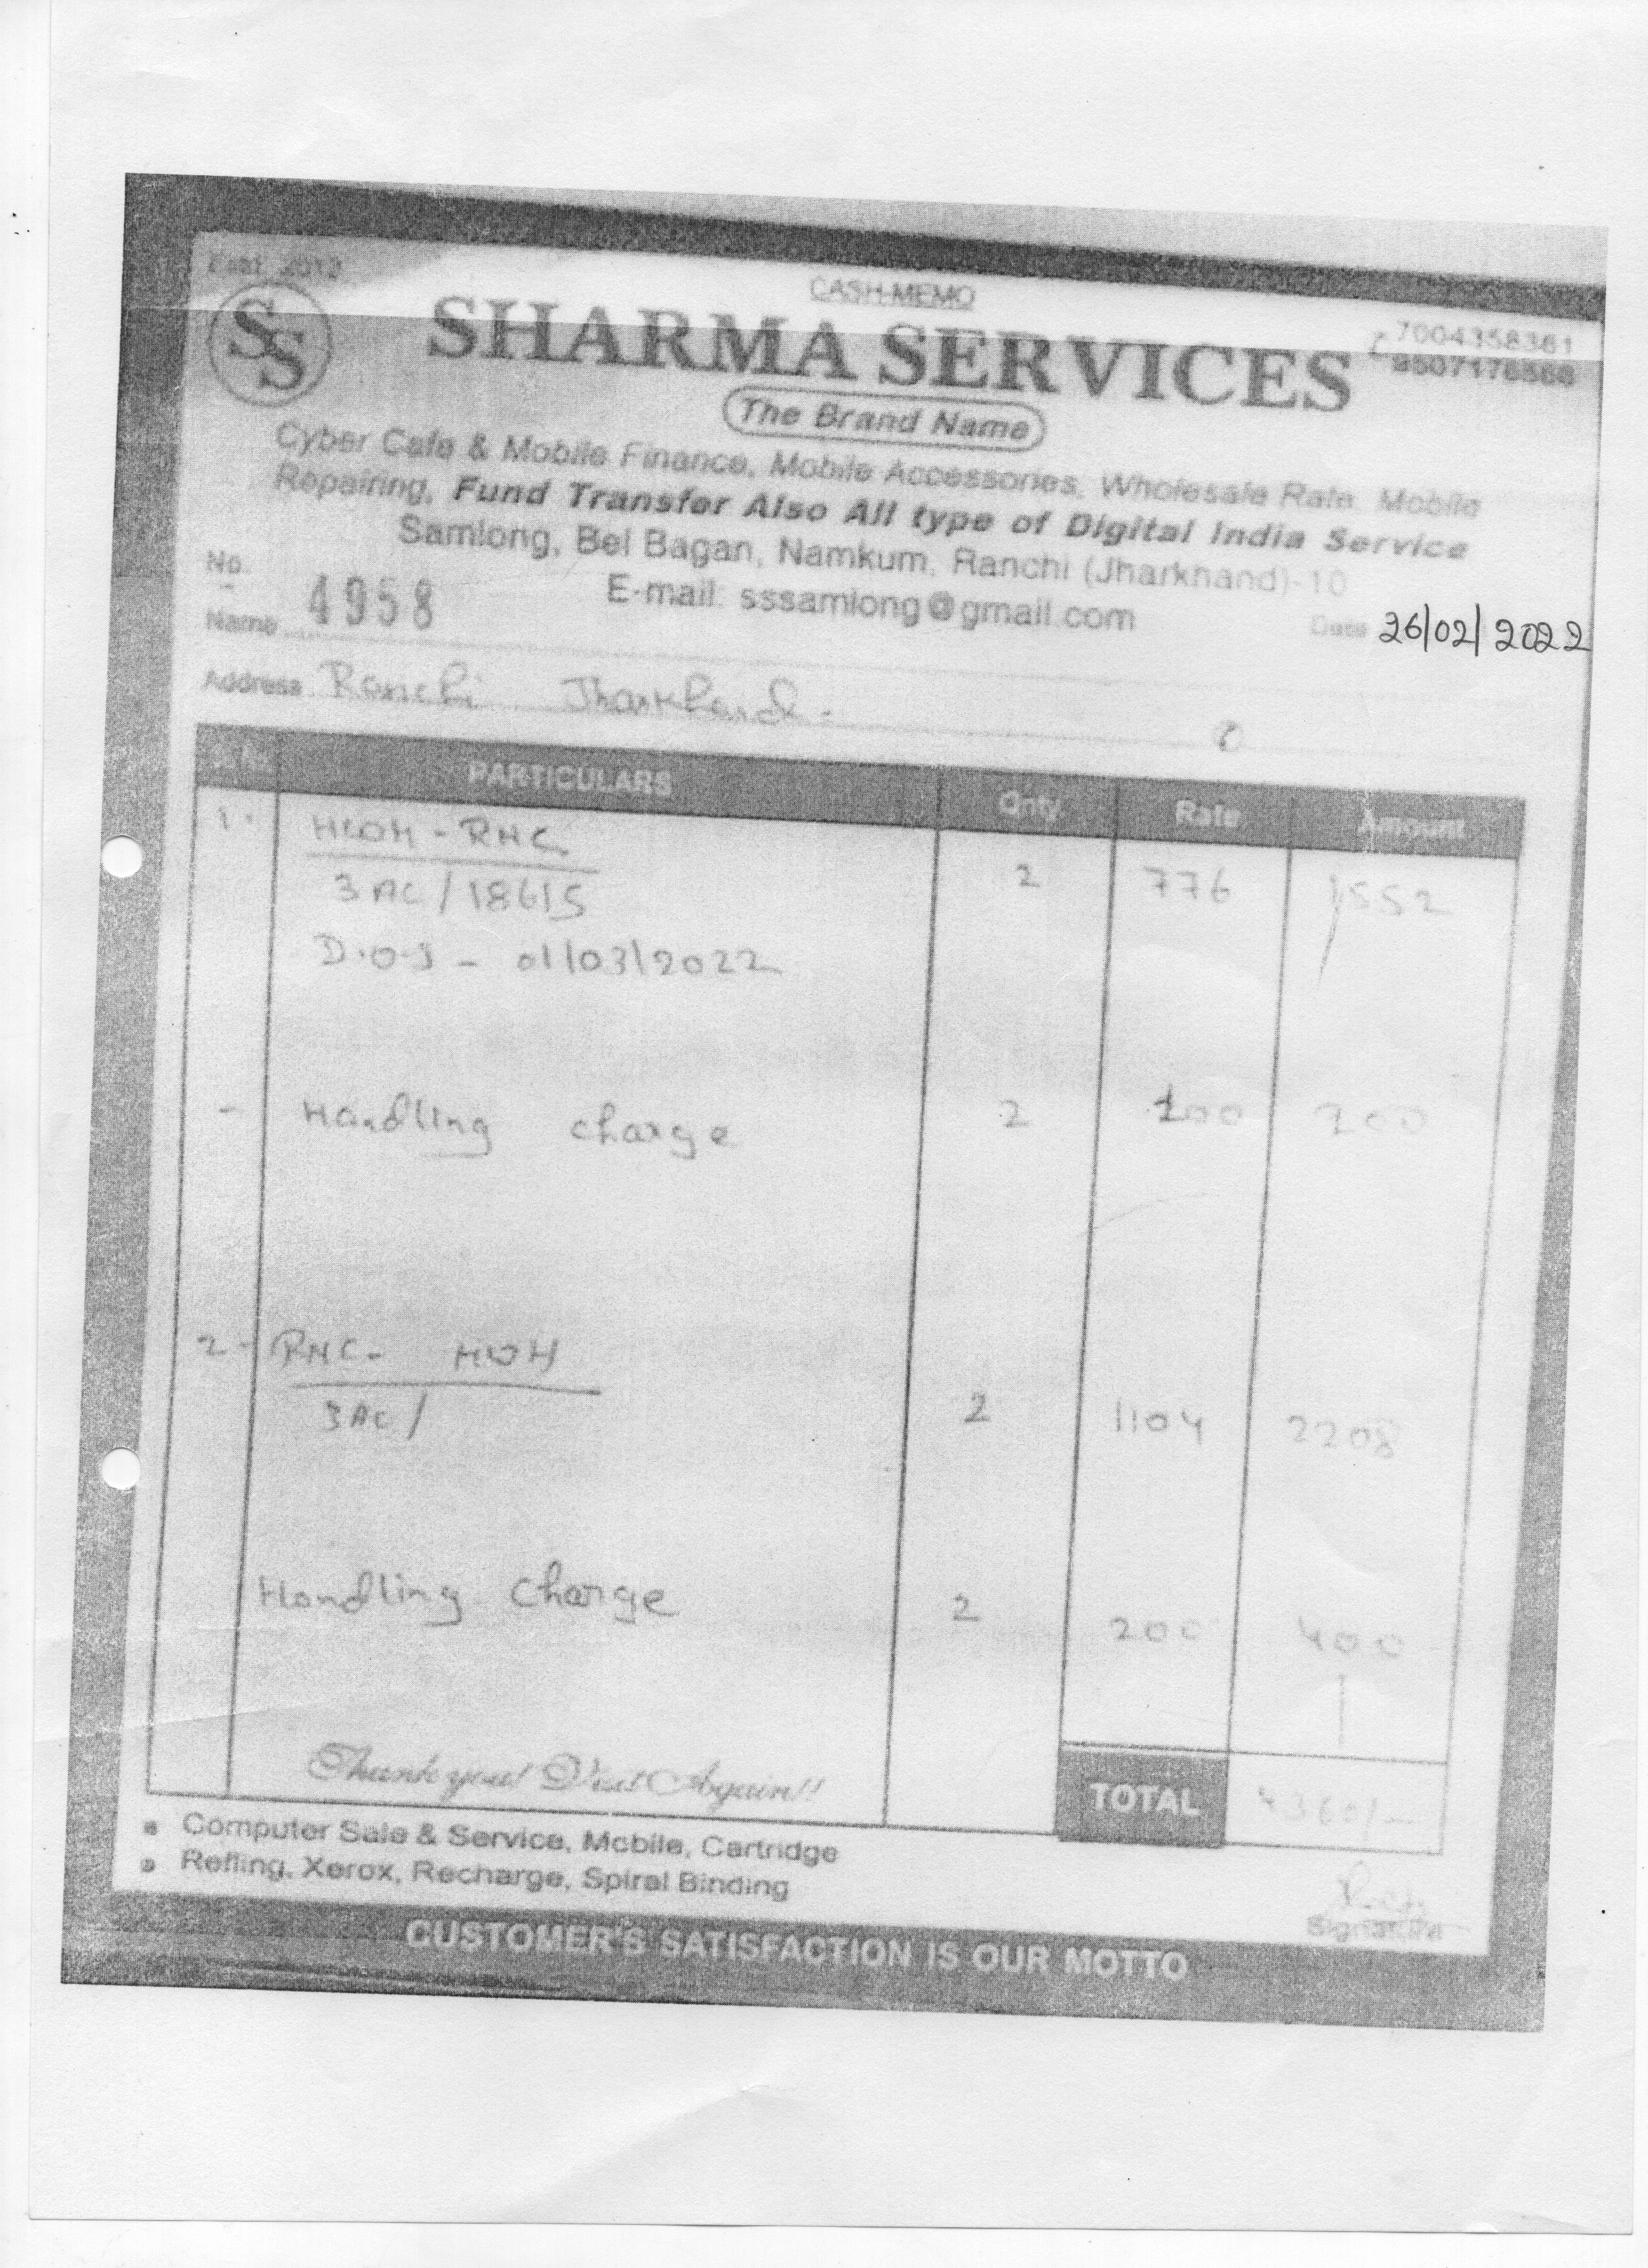 Estd. 2012
CASH MEMO
SS
SHARMA SERVICES
7004358361
The Brand Name
Cyber Cafe & Mobile Finance, Mobile Accessories, Wholesale Rate, Mobile
Repairing, Fund Transfer Also All type of Digital India Service
Samlong, Bel Bagan, Namkum, Ranchi (Jharkhand)-10
No. 4958
E-mail: sssamlong@gmail.com
Date 26/02/2022
Name
Address Ranchi Jharkhand.
S.No. PARTICULARS Qnty. Rate Amount
1. HWH - RNC 2 776 1552
3AC / 18615
D.O.J - 01/03/2022
- Handling charge 2 100 200
2- RNC - HWH
3AC / 2 1104 2208
Handling Charge 2 200 400
Thank you! Visit Again!!
TOTAL 4360/-
Computer Sale & Service, Mobile, Cartridge
Refling, Xerox, Recharge, Spiral Binding
Signature
CUSTOMER'S SATISFACTION IS OUR MOTTO